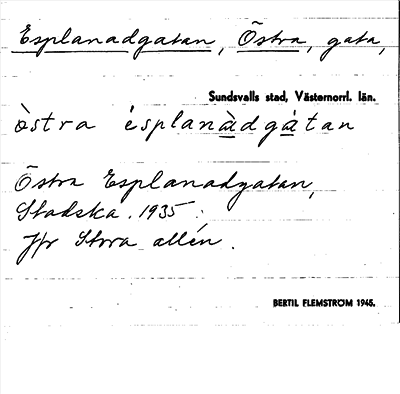 Esplanadgatan, Östra, gata,
Sundsvalls stad, Västernorrl. län.
òstra ésplanàdgàtan
Östra Esplanadgatan,
Stadska. 1935.
Jfr Stora allén.
BERTIL FLEMSTRÖM 1945.